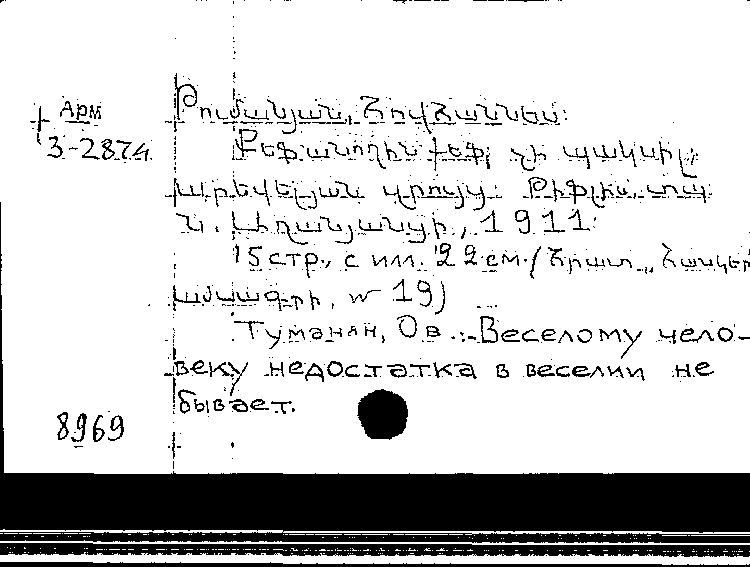 Арм
3-2874
Թումանյան, Հովհաննես:
Քեֆ անողին քեֆ չի պակսիլ:
արևելյան զրույց: Թիֆլիս, տպ.
Ն. Աղանյանցի, 1911:
15 стр., с илл. 22 см. (Հրատ. „Հասկեր"
ամսագրի, № 19)
Туманян, Ов.: Веселому чело-
веку недостатка в веселии не
бывает.
8969